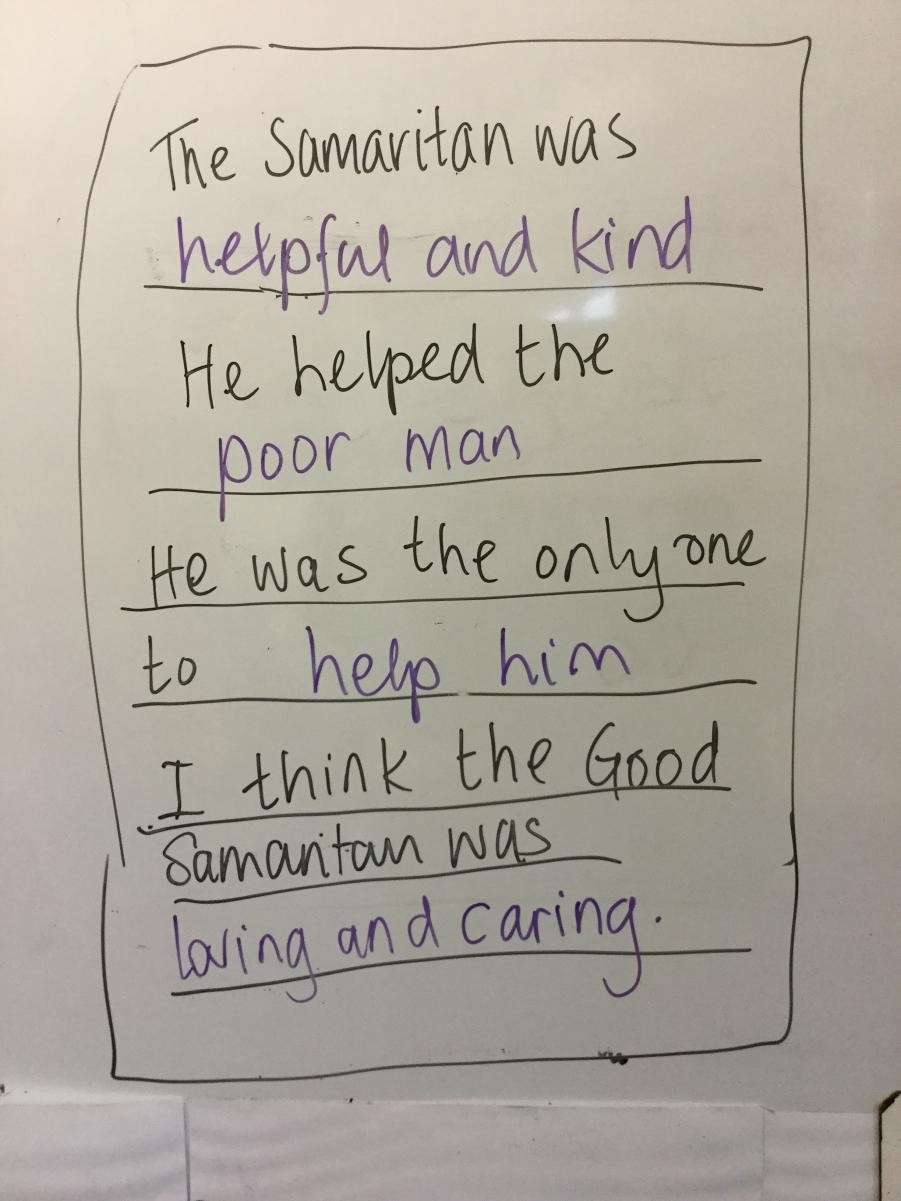 The Samaritan was
helpful and kind
He helped the
poor man
He was the only one
to help him
I think the Good
Samaritan was
loving and caring.